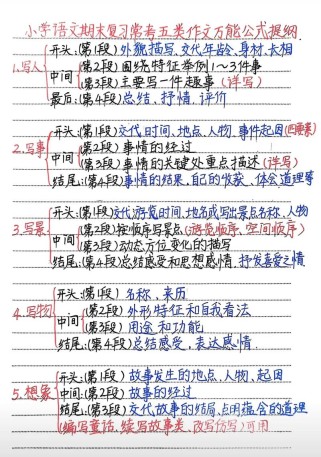 小学语文期末复习常考五类作文万能公式提纲
1.写人
开头:(第1段)外貌描写,交代年龄、身材、长相
中间
(第2段)围绕特征举例1~3件事
(第3段)主要写一件趣事(详写)
最后:(第4段)总结,抒情,评价
2.写事
开头:(第1段)交代时间、地点、人物、事件起因(四要素)
中间
(第2段)事情的经过
(第3段)事情的关键处重点描述(详写)
结尾:(第4段)事情的结果,自己的收获,体会道理等
3.写景
开头:(第1段)交代游览时间,地名或写出景点名称,人物
中间
(第2段)按顺序写景点(游览顺序、空间顺序)
(第3段)动态方位变化的描写
结尾:(第4段)总结感受和思想感情,抒发喜爱之情
4.写物
开头:(第1段)名称、来历
中间
(第2段)外形特征和自我看法
(第3段)用途和功能
结尾:(第4段)总结感受,表达感情.
5.想象
开头:(第1段)故事发生的地点、人物、起因
中间:(第2段)故事的经过
(第3段)交代故事的结局,点明蕴含的道理
(编写童话,续写故事类、改写仿写)可用